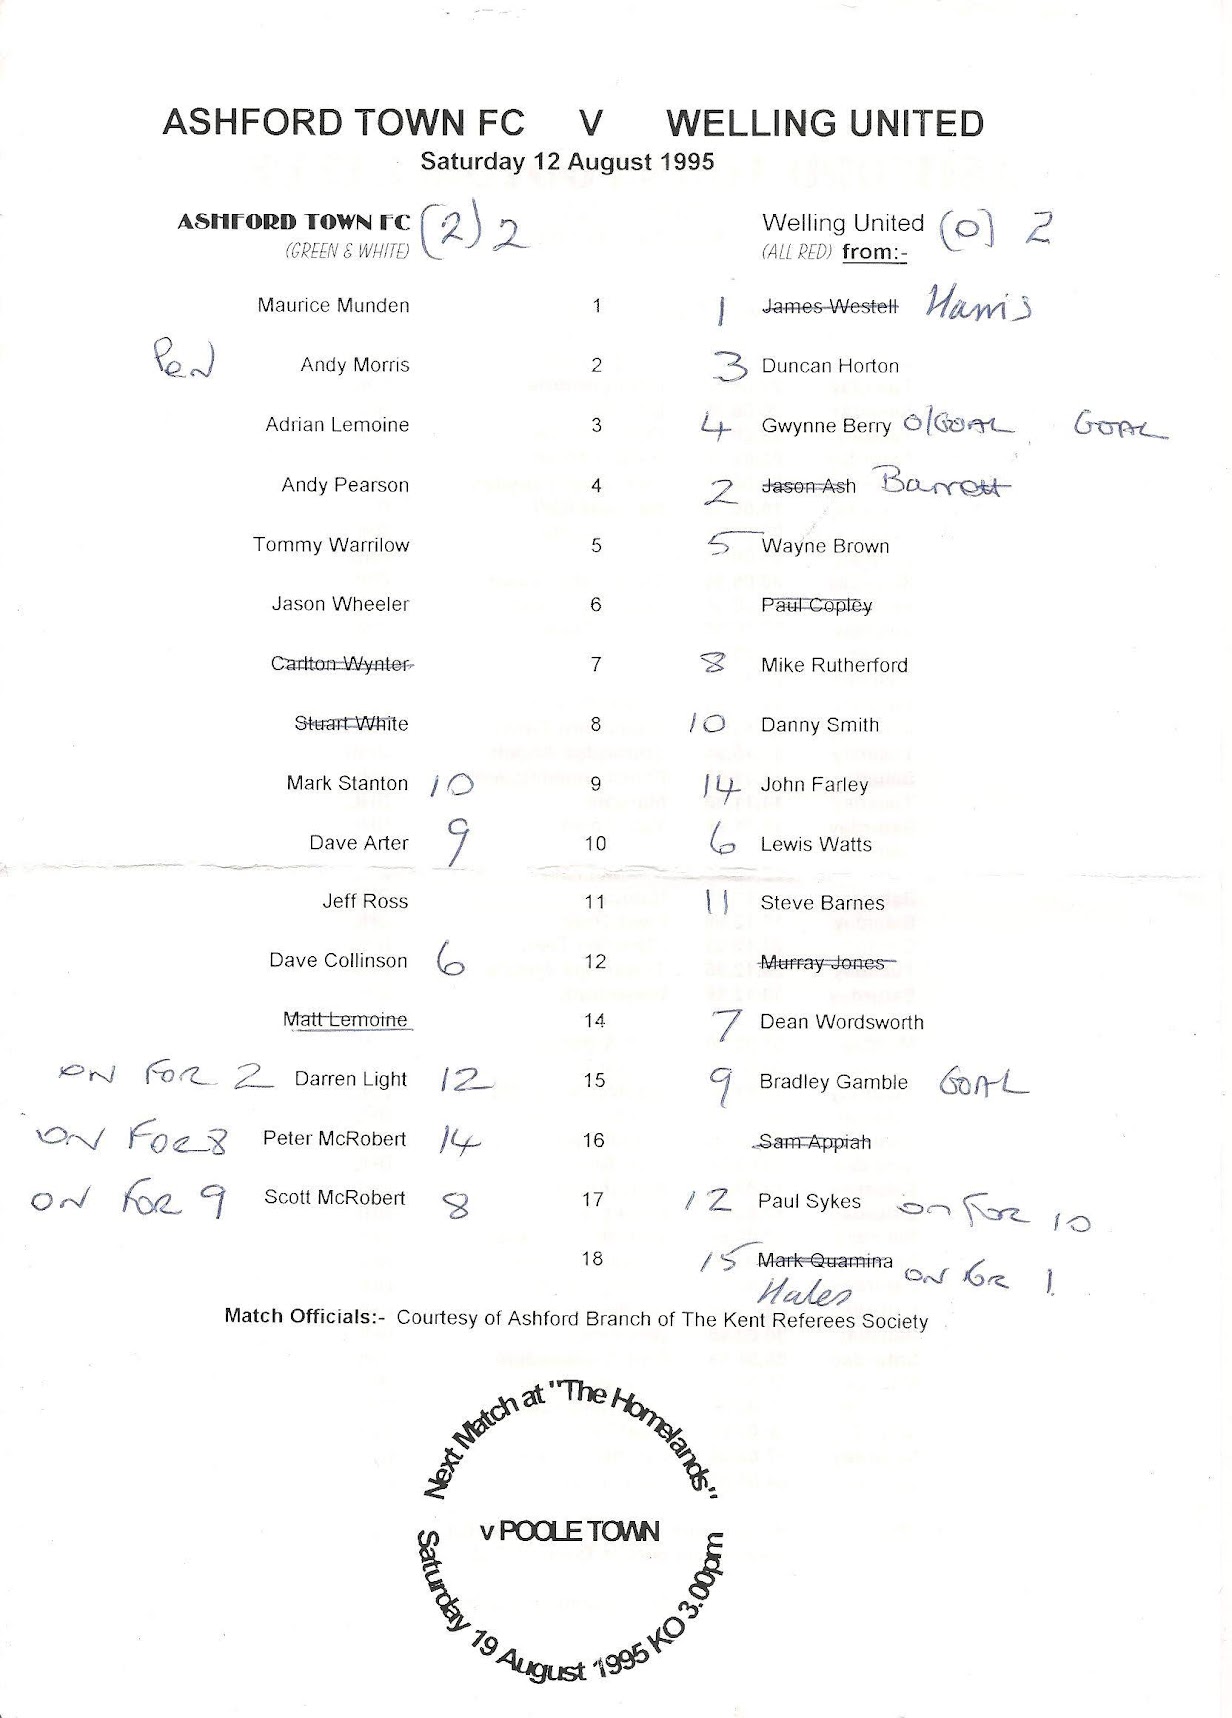 ASHFORD TOWN FC V WELLING UNITED
Saturday 12 August 1995
ASHFORD TOWN FC (2) 2 Welling United (0) 2
(GREEN & WHITE) (ALL RED) from:-
Maurice Munden 1 1 James Westell Harris
Pen Andy Morris 2 3 Duncan Horton
Adrian Lemoine 3 4 Gwynne Berry O/GOAL GOAL
Andy Pearson 4 2 Jason Ash Barrett
Tommy Warrilow 5 5 Wayne Brown
Jason Wheeler 6 Paul Copley
Carlton Wynter 7 8 Mike Rutherford
Stuart White 8 10 Danny Smith
Mark Stanton 10 9 14 John Farley
Dave Arter 9 10 6 Lewis Watts
Jeff Ross 11 11 Steve Barnes
Dave Collinson 6 12 Murray Jones
Matt Lemoine 14 7 Dean Wordsworth
ON FOR 2 Darren Light 12 15 9 Bradley Gamble GOAL
ON FOR 8 Peter McRobert 14 16 Sam Appiah
ON FOR 9 Scott McRobert 8 17 12 Paul Sykes on FOR 10
18 15 Mark Quamina ON FOR 1
Hales
Match Officials:- Courtesy of Ashford Branch of The Kent Referees Society
Next Match at "The Homelands"
v POOLE TOWN
Saturday 19 August 1995 KO 3.00pm